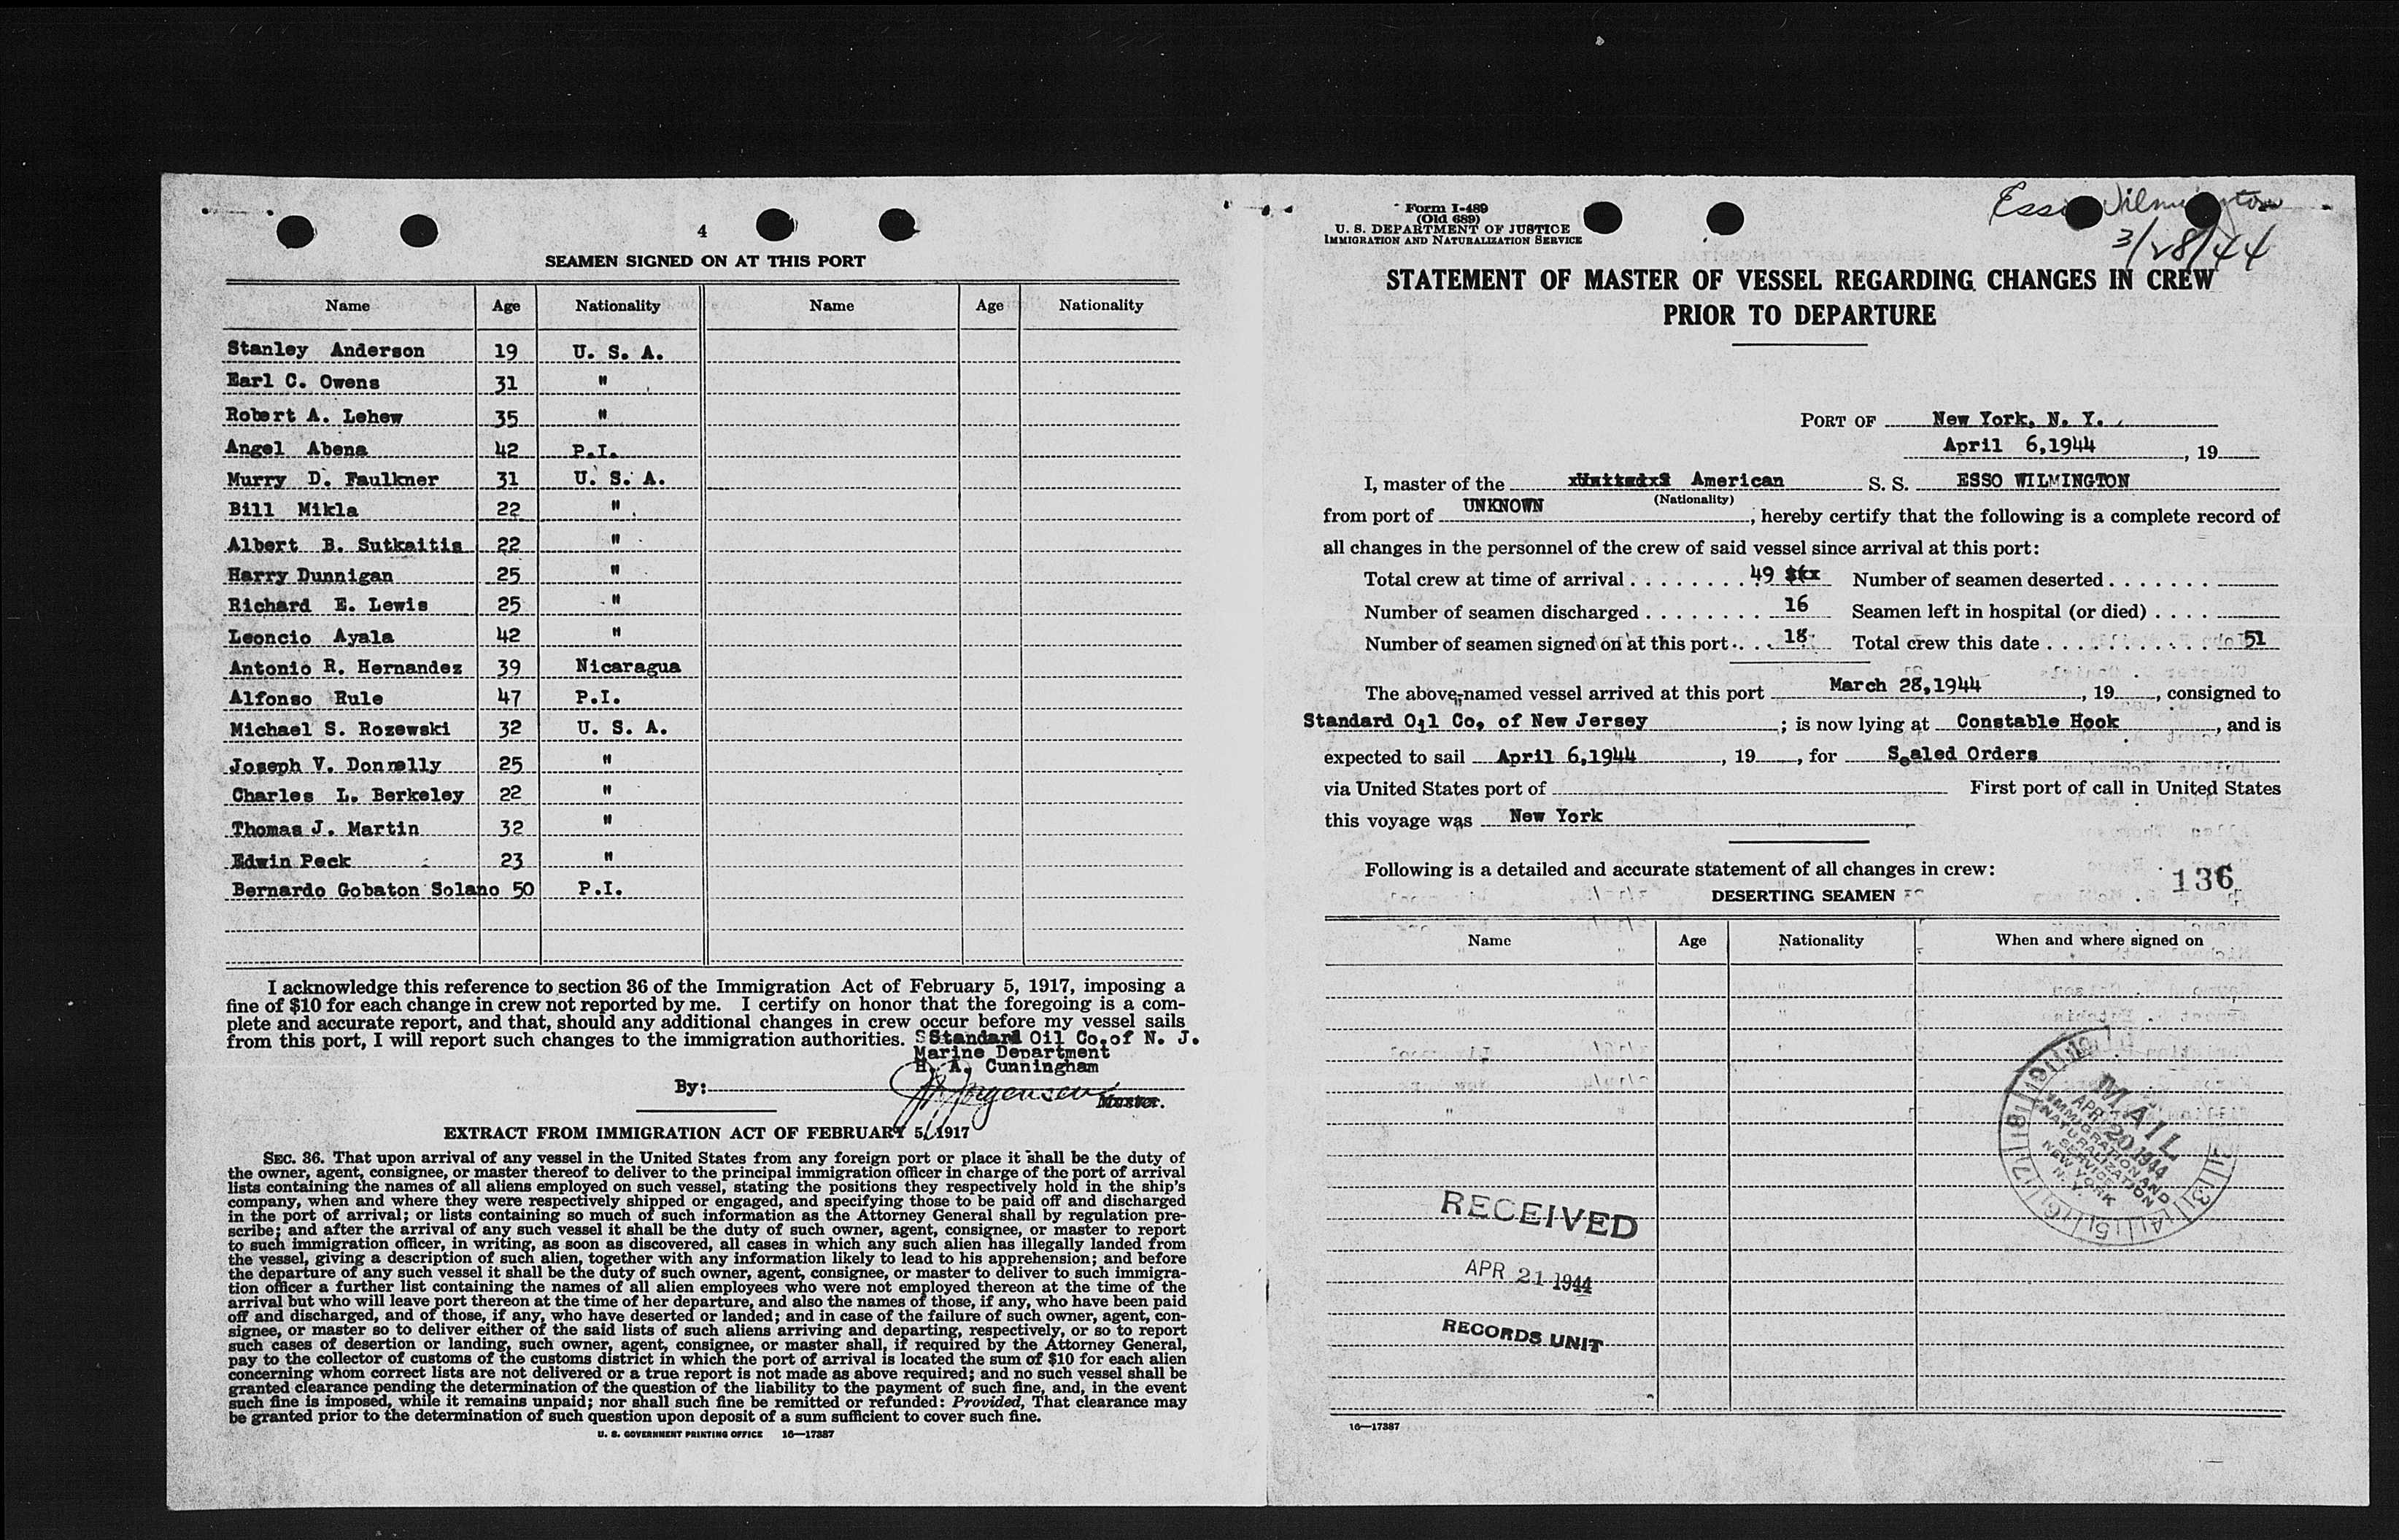 4
SEAMEN SIGNED ON AT THIS PORT
Name Age Nationality Name Age Nationality
Stanley Anderson 19 U. S. A.
Earl C. Owens 31 "
Robert A. Lehew 35 "
Angel Abena 42 P.I.
Murry D. Faulkner 31 U. S. A.
Bill Mikla 22 "
Albert B. Sutkaitis 22 "
Harry Dunnigan 25 "
Richard E. Lewis 25 "
Leoncio Ayala 42 "
Antonio R. Hernandez 39 Nicaragua
Alfonso Rule 47 P.I.
Michael S. Rozewski 32 U. S. A.
Joseph V. Donnelly 25 "
Charles L. Berkeley 22 "
Thomas J. Martin 32 "
Edwin Peck 23 "
Bernardo Gobaton Solano 50 P.I.
I acknowledge this reference to section 36 of the Immigration Act of February 5, 1917, imposing a
fine of $10 for each change in crew not reported by me. I certify on honor that the foregoing is a com-
plete and accurate report, and that, should any additional changes in crew occur before my vessel sails
from this port, I will report such changes to the immigration authorities. Standard Oil Co. of N. J.
Marine Department
H. A. Cunningham
By: Master.
EXTRACT FROM IMMIGRATION ACT OF FEBRUARY 5, 1917
SEC. 36. That upon arrival of any vessel in the United States from any foreign port or place it shall be the duty of
the owner, agent, consignee, or master thereof to deliver to the principal immigration officer in charge of the port of arrival
lists containing the names of all aliens employed on such vessel, stating the positions they respectively hold in the ship's
company, when and where they were respectively shipped or engaged, and specifying those to be paid off and discharged
in the port of arrival; or lists containing so much of such information as the Attorney General shall by regulation pre-
scribe; and after the arrival of any such vessel it shall be the duty of such owner, agent, consignee, or master to report
to such immigration officer, in writing, as soon as discovered, all cases in which any such alien has illegally landed from
the vessel, giving a description of such alien, together with any information likely to lead to his apprehension; and before
the departure of any such vessel it shall be the duty of such owner, agent, consignee, or master to deliver to such immigra-
tion officer a further list containing the names of all alien employees who were not employed thereon at the time of the
arrival but who will leave port thereon at the time of her departure, and also the names of those, if any, who have been paid
off and discharged, and of those, if any, who have deserted or landed; and in case of the failure of such owner, agent, con-
signee, or master so to deliver either of the said lists of such aliens arriving and departing, respectively, or so to report
such cases of desertion or landing, such owner, agent, consignee, or master shall, if required by the Attorney General,
pay to the collector of customs of the customs district in which the port of arrival is located the sum of $10 for each alien
concerning whom correct lists are not delivered or a true report is not made as above required; and no such vessel shall be
granted clearance pending the determination of the question of the liability to the payment of such fine, and, in the event
such fine is imposed, while it remains unpaid; nor shall such fine be remitted or refunded: Provided, That clearance may
be granted prior to the determination of such question upon deposit of a sum sufficient to cover such fine.
U. S. GOVERNMENT PRINTING OFFICE 16—17387
Form I-489
(Old 689)
U. S. DEPARTMENT OF JUSTICE
IMMIGRATION AND NATURALIZATION SERVICE
Esso Wilmington
3/28/44
STATEMENT OF MASTER OF VESSEL REGARDING CHANGES IN CREW
PRIOR TO DEPARTURE
PORT OF New York, N. Y.
April 6,1944, 19
I, master of the American S. S. ESSO WILMINGTON
(Nationality)
from port of UNKNOWN, hereby certify that the following is a complete record of
all changes in the personnel of the crew of said vessel since arrival at this port:
Total crew at time of arrival . . . . . . . . 49 Number of seamen deserted . . . . . . .
Number of seamen discharged . . . . . . . . 16 Seamen left in hospital (or died) . . . .
Number of seamen signed on at this port . . . 18 Total crew this date . . . . . . . . . . . 51
The above-named vessel arrived at this port March 28,1944, 19, consigned to
Standard Oil Co, of New Jersey; is now lying at Constable Hook, and is
expected to sail April 6,1944, 19, for Sealed Orders
via United States port of First port of call in United States
this voyage was New York
Following is a detailed and accurate statement of all changes in crew:
136
DESERTING SEAMEN
Name Age Nationality When and where signed on
MAIL
APR 20 1944
IMMIGRATION AND
NATURALIZATION
SERVICE
NEW YORK
N. Y.
RECEIVED
APR 21 1944
RECORDS UNIT
16—17387